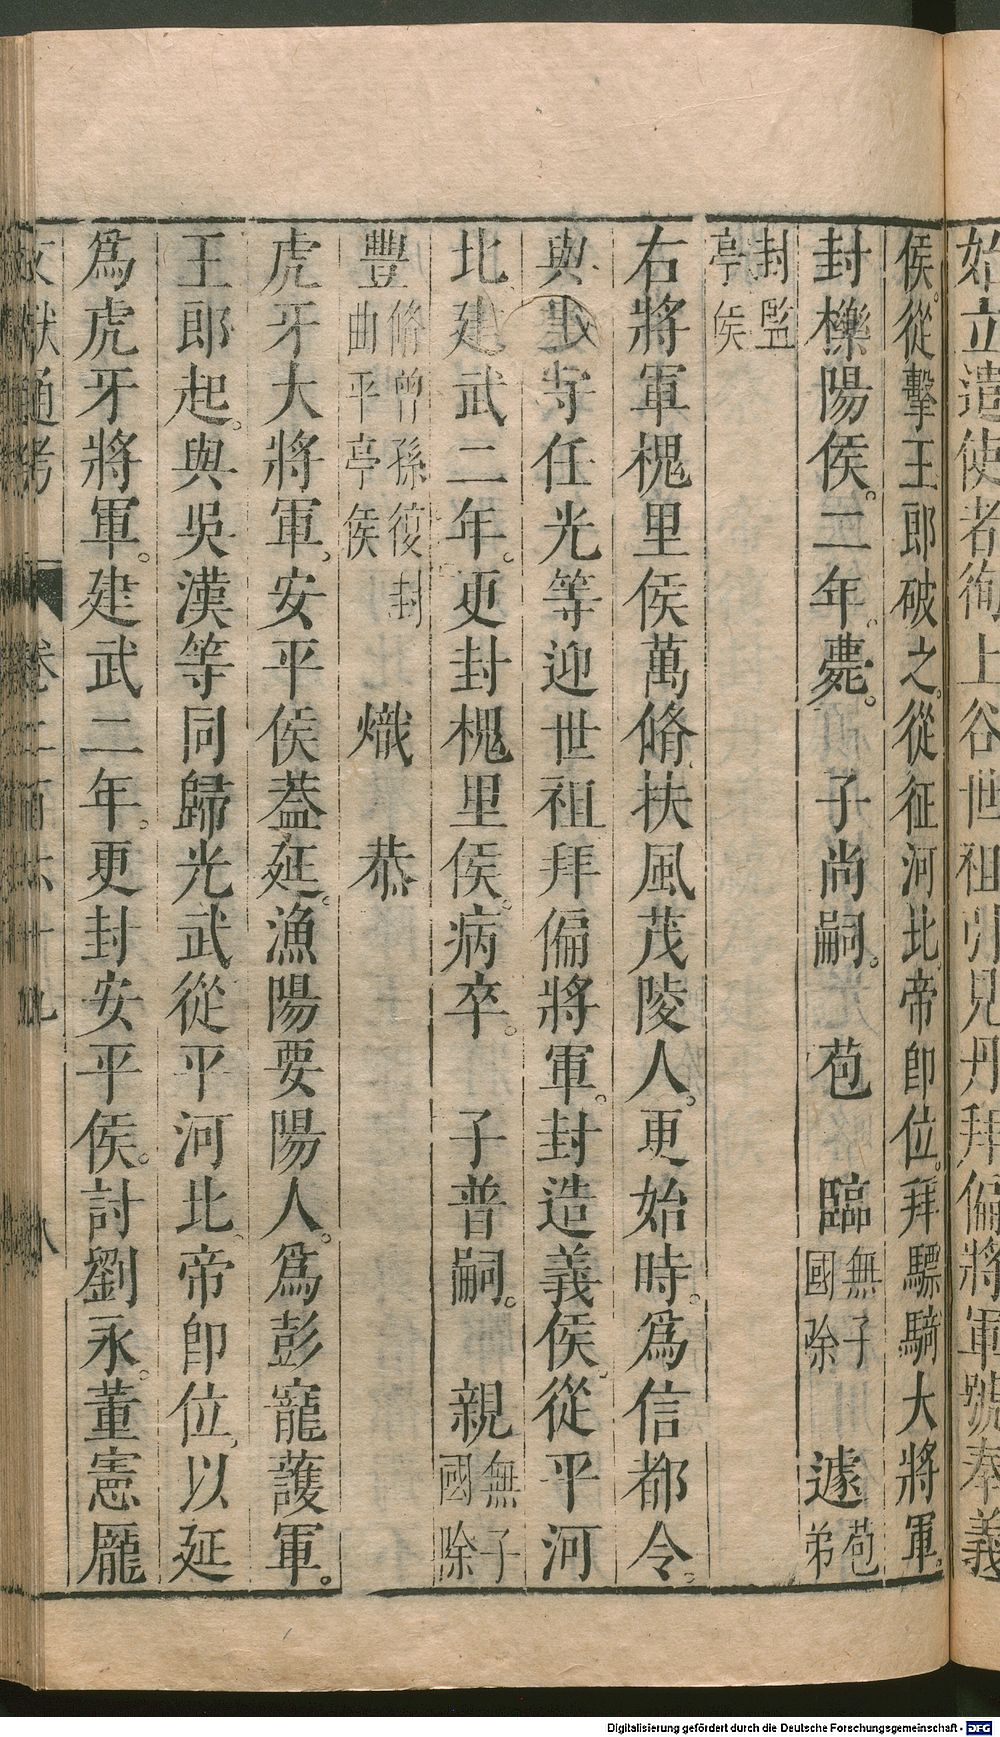 始立遣使者徇上谷世祖引見丹拜偏將軍號奉義
侯。從擊王郎破之。從征河北。帝卽位。拜驃騎大將軍。
封櫟陽侯。二年。薨。 子尚嗣。 苞 臨無子國除 遽苞弟
封監亭侯
右將軍槐里侯萬脩扶風茂陵人。更始時。爲信都令。
與 守任光等迎世祖拜偏將軍。封造義侯。從平河
北建武二年。更封槐里侯。病卒。 子普嗣。 親無子國除
豐脩曾孫復封曲平亭侯 熾 恭
虎牙大將軍。安平侯蓋延。漁陽要陽人。爲彭寵護軍。
王郎起。與吳漢等同歸光武從平河北。帝卽位。以延
爲虎牙將軍。建武二年。更封安平侯。討劉永。董憲龐
文獻通考 卷二百六十九 八
Digitalisierung gefördert durch die Deutsche Forschungsgemeinschaft - DFG